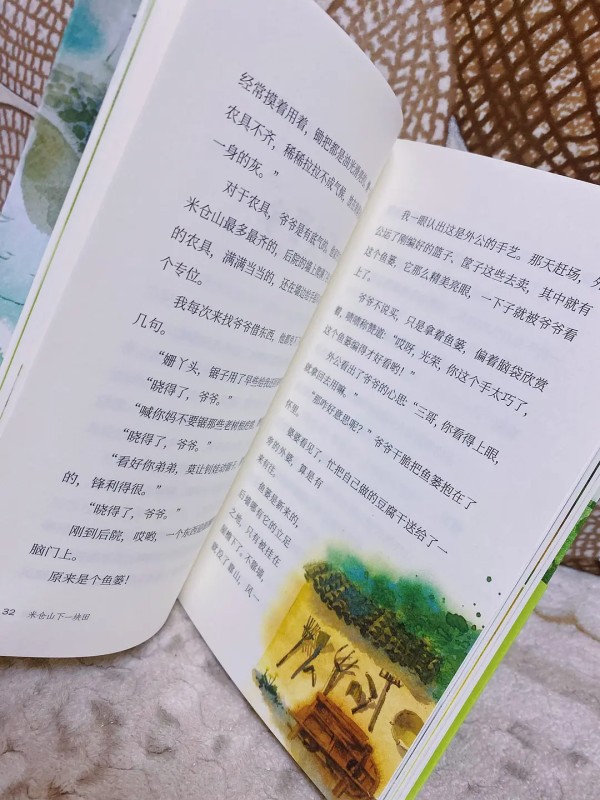 经常摸着用着，锄把都是油光滑亮的，
农具不齐，稀稀拉拉不成气候，
一身的灰。”
对于农具，爷爷是有底气的，
米仓山最多最齐的，后院的墙上
的农具，满满当当的，还在墙边给
个专位。
我每次来找爷爷借东西，他都要
几句。
“姗丫头，锯子用了早些给我
“晓得了，爷爷。”
“喊你妈不要锯那些老树
“晓得了，爷爷。”
“看好你弟弟，莫让他
的，锋利得很。”
“晓得了，爷爷。”
刚到后院，哎哟，一个东西
脑门上。
原来是个鱼篓！
32 米仓山下一块田
我一眼认出这是外公的手艺。那天赶场，外
公运了刚编好的篮子、筐子这些去卖，其中就有
这个鱼篓，它那么精美亮眼，一下子就被爷爷看
上了。
爷爷不说买，只是拿着鱼篓，偏着脑袋欣赏
着，啧啧称赞道：“哎呀，光荣，你这个手太巧了，
这个鱼篓编得才好看哟！”
外公看出了爷爷的心思：“三哥，你看得上眼，
就拿回去用嘛。”
“那咋好意思呢？”爷爷干脆把鱼篓抱在了
怀里。
婆婆看见了，忙把自己做的豆腐干送给了一
旁的外婆，算是有
来有往。
鱼篓是新来的，
后墙都有它的立足
之地，只有被挂在
屋檐下。不靠墙，
就没了靠山，风一